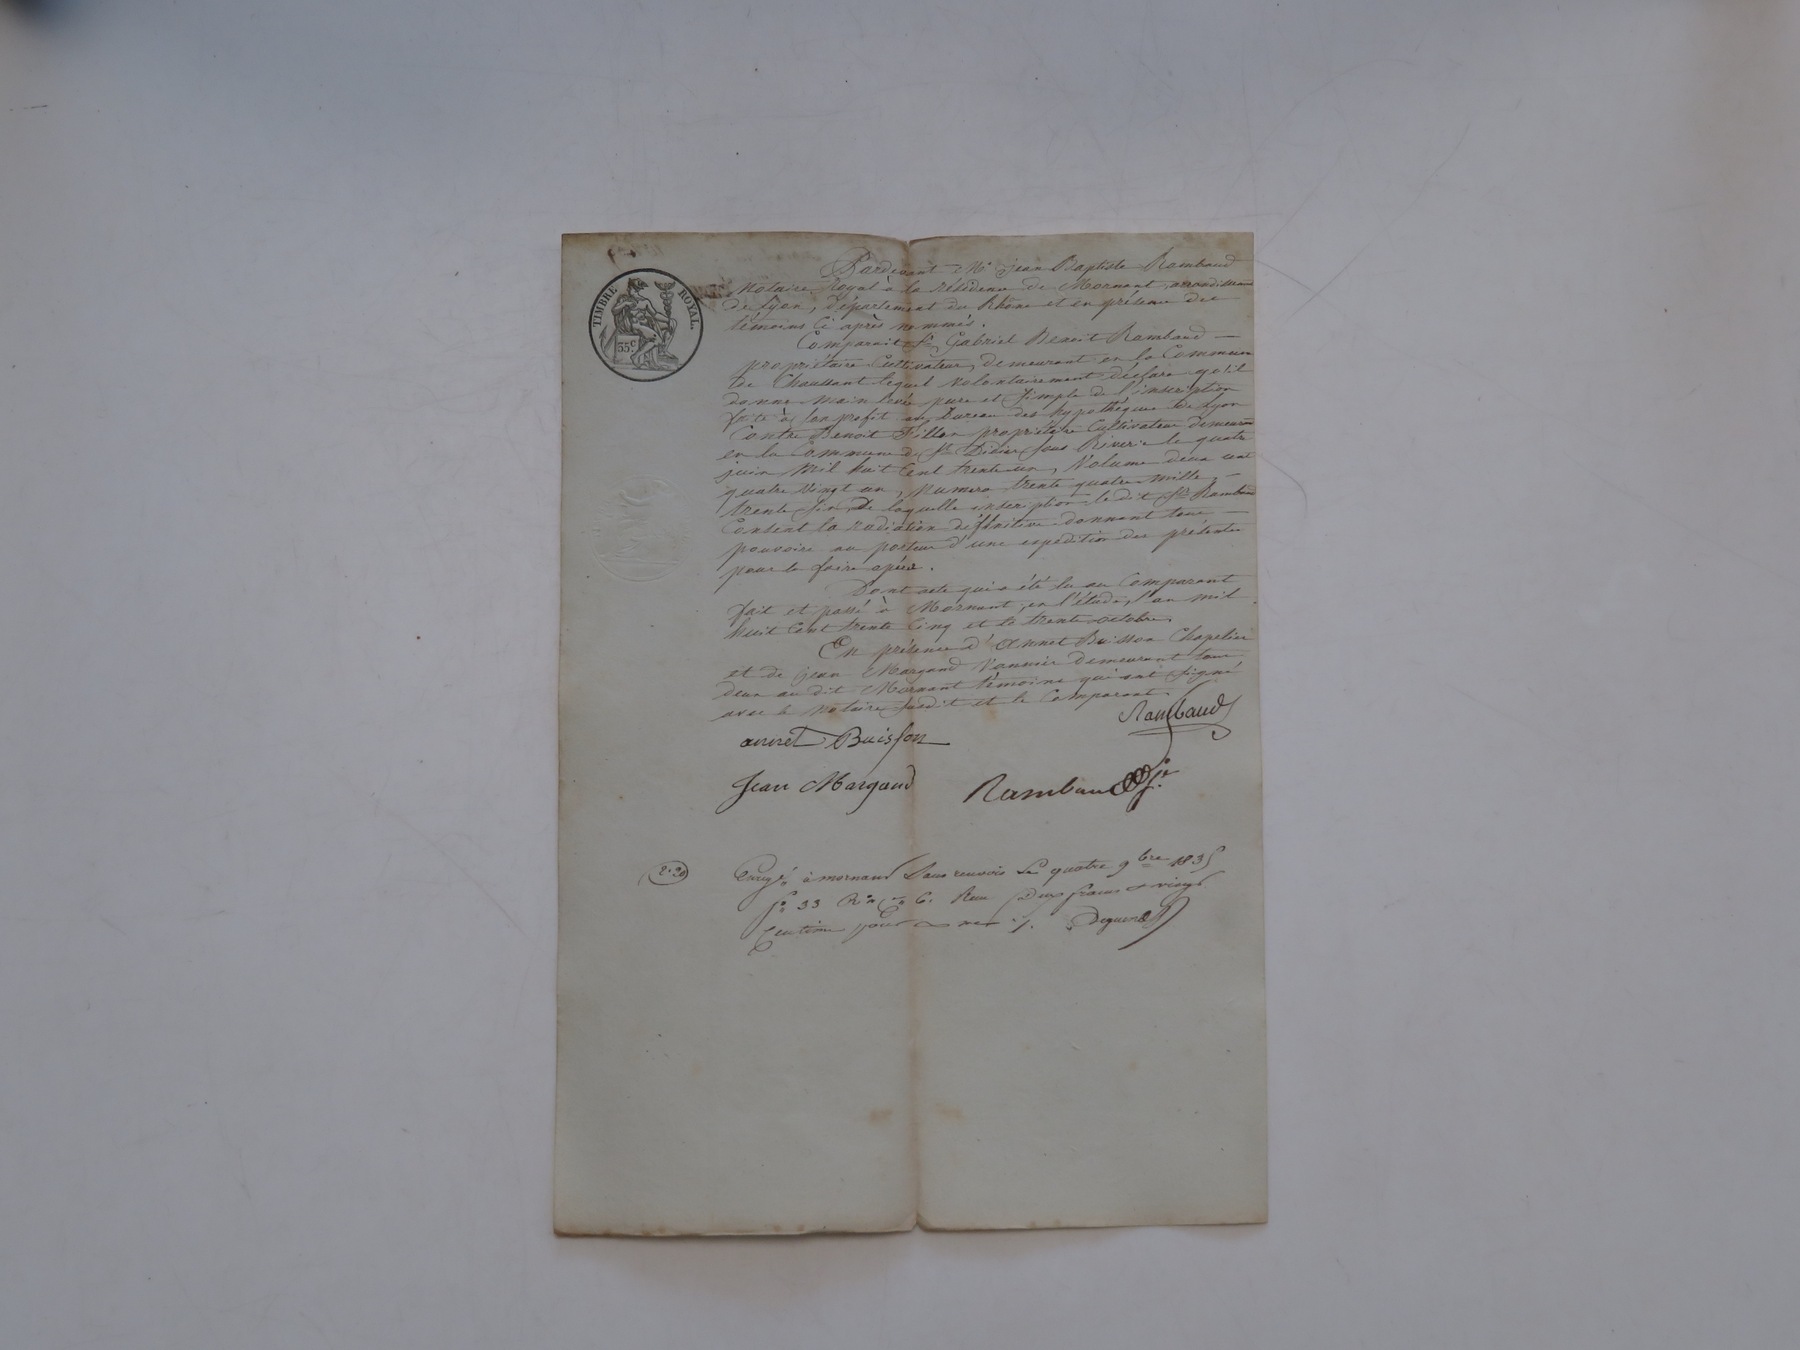 TIMBRE ROYAL.
35 c.
Pardevant Me jean Baptiste Rambaud
Notaire Royal à la résidence de Mornant arrondissement
de Lyon, département du Rhône et en présence des
témoins ci après nommés.
Comparait Sr Gabriel Benoit Rambaud —
propriétaire Cultivateur, demeurant en la Commune
de Chaussant lequel volontairement déclare qu'il
donne main levée pure et simple de l'inscription
faite à son profit au bureau des hypothèques de Lyon
Contre Benoit Fillon propriétaire Cultivateur demeurant
en la Commune de St Didier sous Riverie le quatre
juin mil huit Cent trente un, Volume deux cent
quatre vingt un, numero trente quatre mille —
trente six, De laquelle inscription le dit Sr Rambaud
Consent la radiation définitive donnant tous —
pouvoirs au porteur d'une expedition des présentes
pour la faire opérer.
Dont acte qui a été lu au Comparant
fait et passé à Mornant, en l'étude, l'an mil
huit Cent trente Cinq et le trente octobre.
En présence d'Annet Buisson Chapelier
et de jean Margand Vannier demeurant tous
deux au dit Mornant témoins qui ont signé
avec le notaire susdit et le Comparant.
Rambaud
annet Buisson
Jean Margaud
Rambaud
2.20
à mornant Sans renvois Le quatre 9bre 1835
fo 33 Ro Co 6. Reçu Deux francs vingt
Centime pour